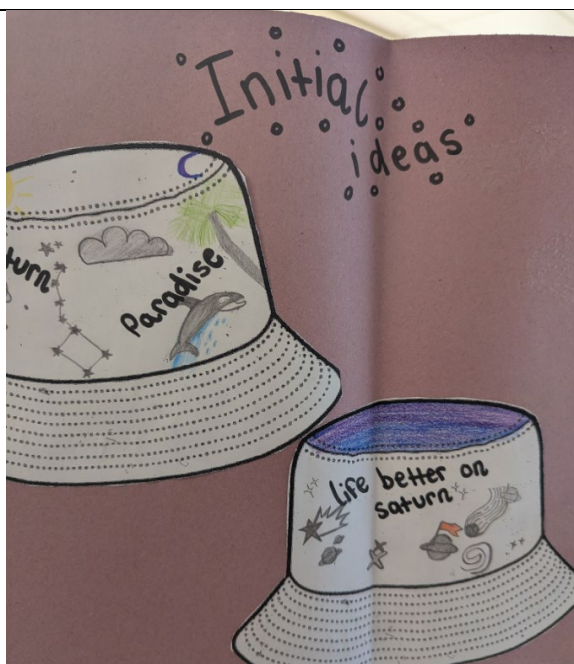 Initial
ideas
turn
Paradise
life better on
saturn